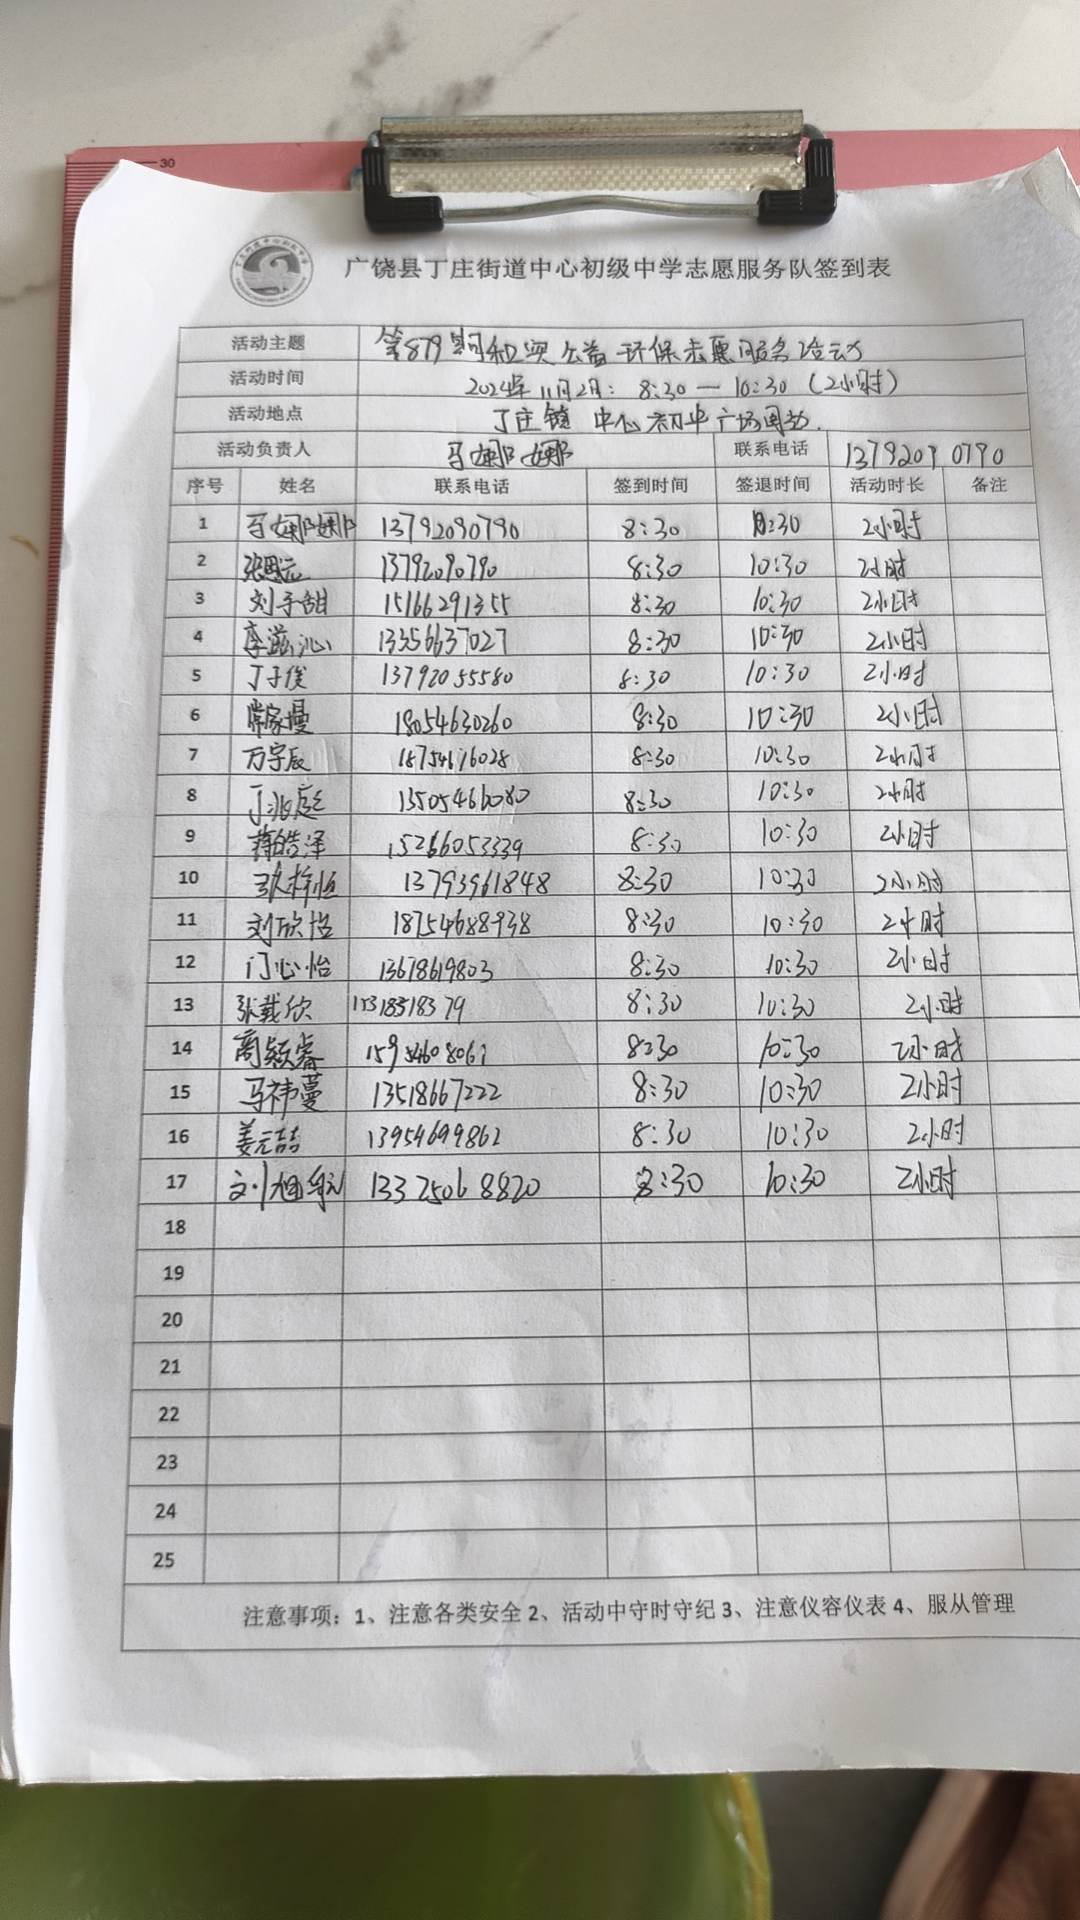 30
广饶县丁庄街道中心初级中学志愿服务队签到表
活动主题 第879期和实公益环保志愿服务活动
活动时间 2024年11月2日: 8:30 — 10:30 (2小时)
活动地点 丁庄镇 中心初中广场周边.
活动负责人 马娜娜 联系电话 13792090790
序号 姓名 联系电话 签到时间 签退时间 活动时长 备注
1 马娜娜 13792090790 8:30 10:30 2小时
2 张思元 13792090790 8:30 10:30 2小时
3 刘子甜 15166291355 8:30 10:30 2小时
4 李滋沁 13356637027 8:30 10:30 2小时
5 丁子俊 13792055580 8:30 10:30 2小时
6 常家墁 18054630260 8:30 10:30 2小时
7 万宇辰 18754676028 8:30 10:30 2小时
8 丁兆庭 13505466080 8:30 10:30 2小时
9 蒋皓泽 15266053339 8:30 10:30 2小时
10 13793961848 8:30 10:30 2小时
11 刘欣怡 18754688938 8:30 10:30 2小时
12 门心怡 13678619803 8:30 10:30 2小时
13 张载欣 8:30 10:30 2小时
14 商颖睿 15954608061 8:30 10:30 2小时
15 马祎蔓 13518667222 8:30 10:30 2小时
16 姜元喆 13954699862 8:30 10:30 2小时
17 刘旭航 13325068820 8:30 10:30 2小时
18
19
20
21
22
23
24
25
注意事项: 1、注意各类安全 2、活动中守时守纪 3、注意仪容仪表 4、服从管理